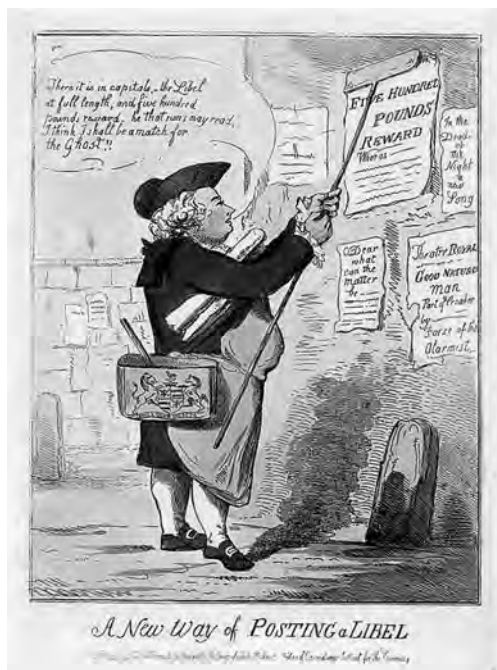 There it is in capitals, the Libel
at full length, and five hundred
pounds reward, he that runs may read,
I think I shall be a match for
the Ghost!!
FIVE HUNDRED
POUNDS
REWARD
Whereas
In the
Dead
of the
Night
a new
Song
O Dear
what
can the
matter
be
Theatre ROYAL
GOOD NATURED
Man
Part of Croaker
by
Farce of the
Alarmist
A New Way of POSTING a LIBEL